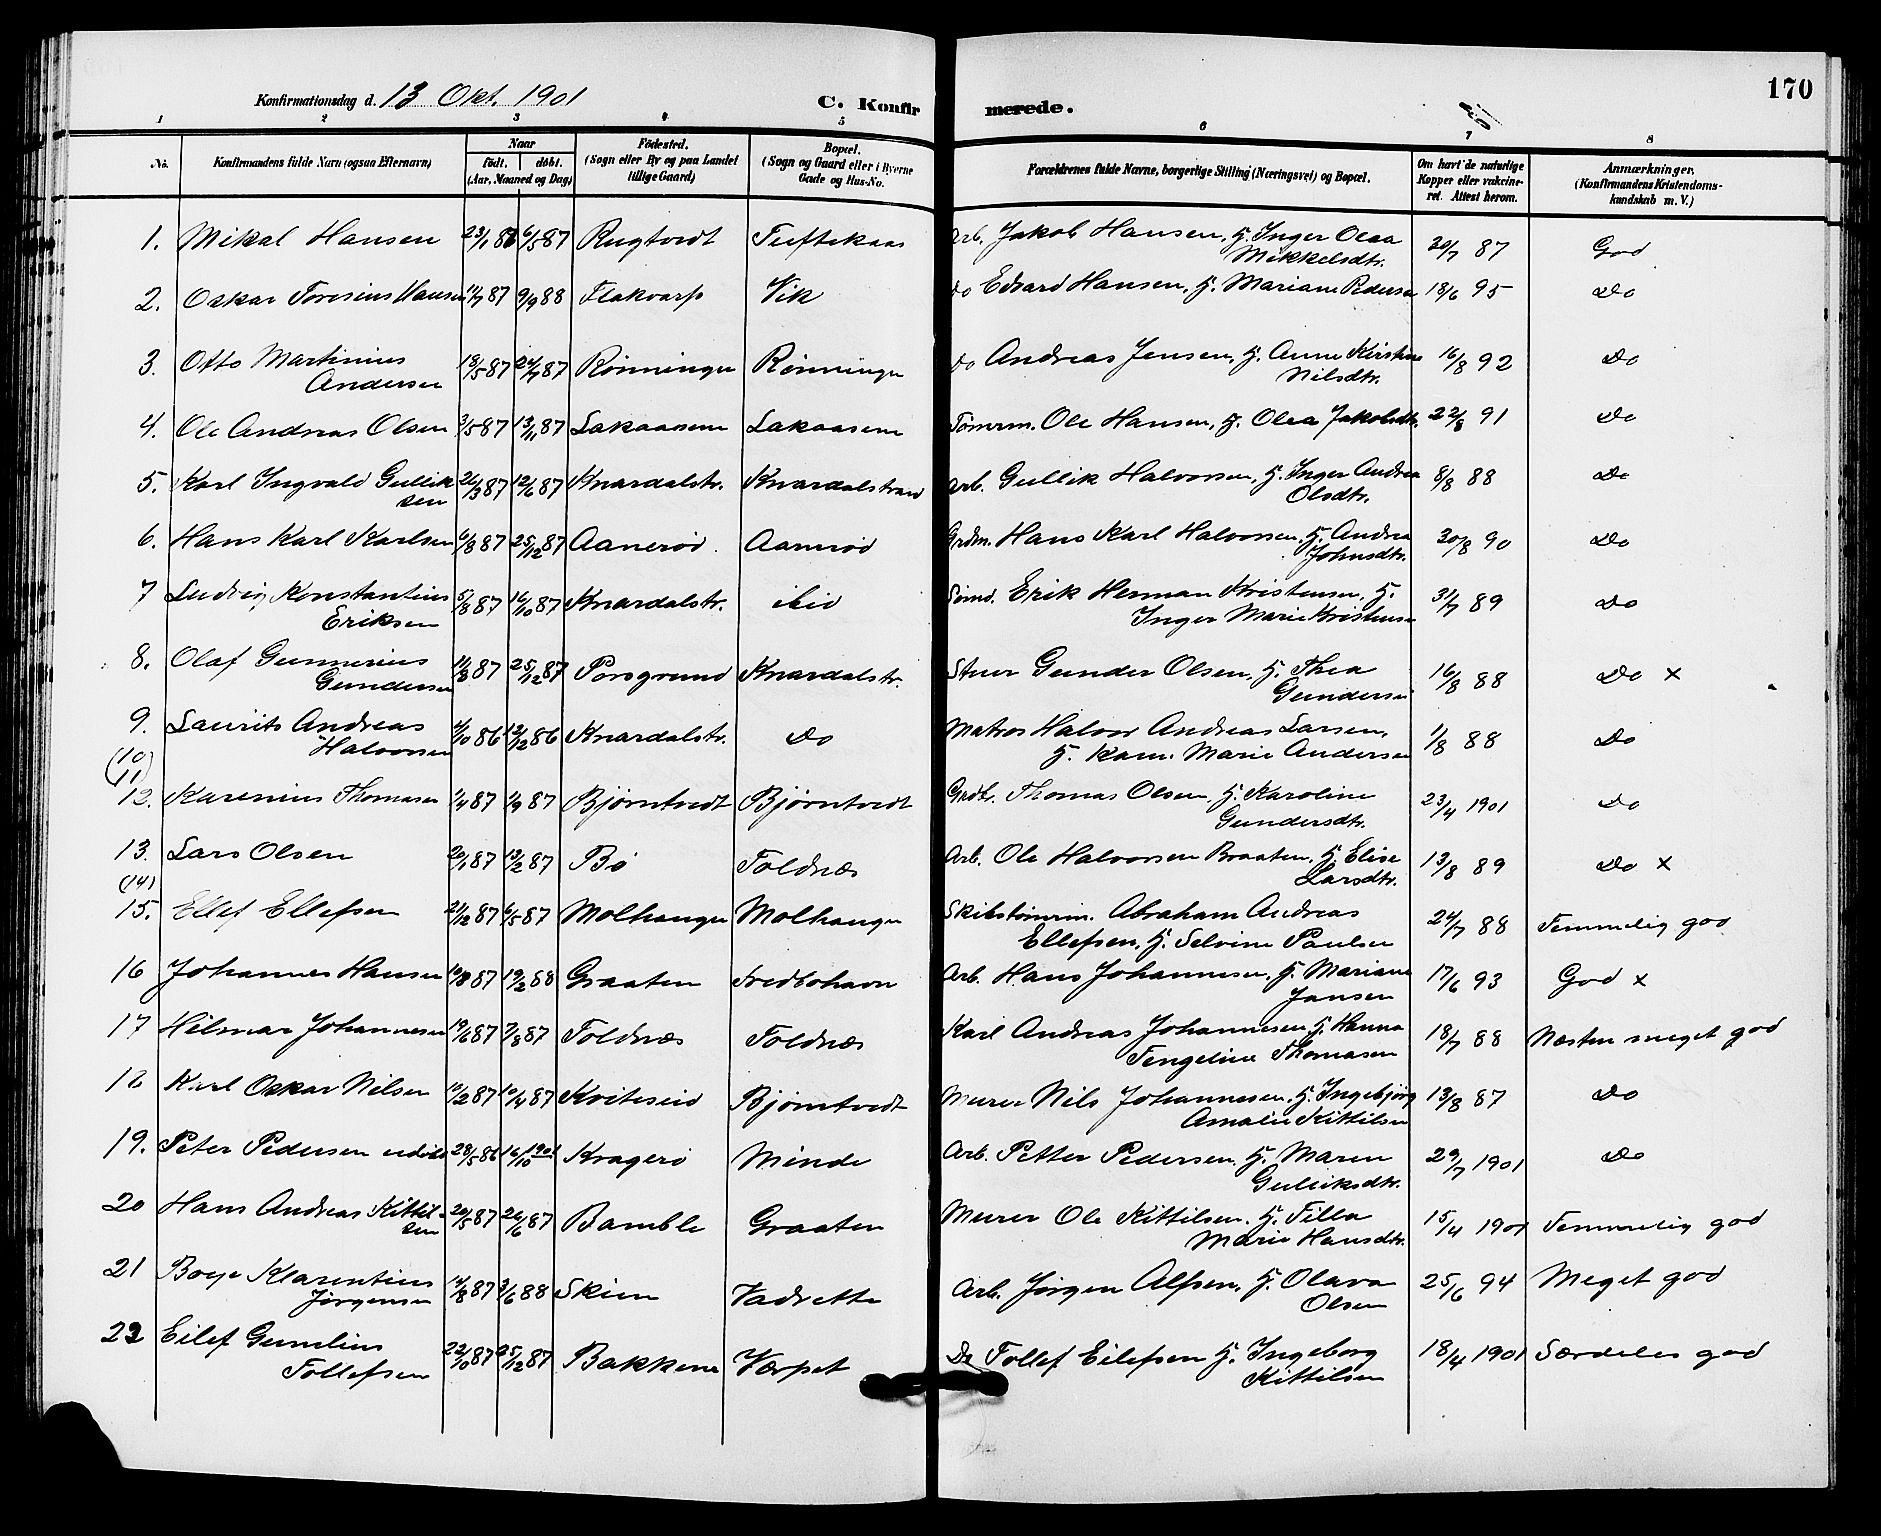 170
Konfirmationsdag d. 13 Okt. 1901 C. Konfir merede.
1 2 3 4 5 6 7 8
No. Konfirmandens fulde Navn (ogsaa Efternavn) Naar født. døbt. (Aar, Maaned og Dag) Fødested. (Sogn eller By og paa Landet tillige Gaard) Bopæl. (Sogn og Gaard eller i Byerne Gade og Hus-No. Forældrenes fulde Navne, borgerlige Stilling (Næringsvei) og Bopæl. Om havt de naturlige Kopper eller vakcineret. Attest herom. Anmærkninger. (Konfirmandens Kristendomskundskab m. V.)
1. Mikal Hansen 23/1 86 6/5 87 Rugtvedt Tuftekaas Arb. Jakob Hansen, H. Inger Olea Mikkelsdtr. 20/7 87 God
2. Oskar Toresius Hansen 11/7 87 9/9 88 Flakvarp Vik do Edvard Hansen, H. Mariane Pedersen 18/6 95 Do
3. Otto Martinius Andersen 18/5 87 24/7 87 Rønningen Rønningen do Andreas Jensen, H. Anne Kirstine Nilsdtr. 16/8 92 Do
4. Ole Andreas Olsen 3/5 87 13/11 87 Lakaasene Lakaasene Tømrm. Ole Hansen, H. Olea Jakobsdtr. 22/8 91 Do
5. Karl Ingvald Gulliksen 26/3 87 12/6 87 Knardalstr. Knardalstrand Arb. Gullik Halvorsen, H. Inger Andrea Olsdtr. 8/8 88 Do
6. Hans Karl Karlsen 6/8 87 25/12 87 Aanerød. Aanerød Grdm. Hans Karl Halvorsen, H. Andrea Johnsdtr. 30/8 90 Do
7 Ludvig Konstantius Eriksen 5/8 87 16/10 87 Knardalstr. ibid Sømd. Erik Herman Kristensen, H. Inger Marie Kristensen 31/7 89 Do
8. Olaf Gunnerius Gundersen 11/3 87 25/12 87 Porsgrund Knardalstr. Stuer Gunder Olsen, H. Thea Gundersen 16/8 88 Do x
9. Laurits Andreas Halvorsen 4/10 86 12/12 86 Knardalstr. Do Matros Halvor Andreas Larsen, H. Karn. Marie Andersen 1/8 88 Do
(10
11)
12. Karenius Thomasen 1/4 87 1/9 87 Bjørntvedt Bjørntvedt Grdbr. Thomas Olsen, H. Karoline Gundersdtr. 23/4 1901 Do
13. Lars Olsen 20/1 87 13/2 87 Bø Toldnæs Arb. Ole Halvorsen Braaten, H. Elise Larsdtr. 13/8 89 Do x
(14)
15. Ellef Ellefsen 21/12 87 6/5 87 Molhaugen Molhaugen Skibstømrm. Abraham Andreas Ellefsen, H. Selvine Paulsen 24/7 88 Temmelig god
16 Johannes Hansen 10/8 87 19/2 88 Graaten Fredbohavn Arb. Hans Johannesen, H. Mariane Jansen 17/6 93 God x
17 Hilmar Johannesen 19/6 87 7/8 87 Toldnæs Toldnæs Karl Andreas Johannesen, H. Hanna Tengeline Thomasen 18/7 88 Næsten meget god
18 Karl Oskar Nilsen 10/2 87 10/4 87 Kviteseid Bjørntvedt Murer Nils Johannesen, H. Ingebjørg Amalie Kittilsen 13/8 87 Do
19. Peter Pedersen 28/5 86 16/10 1901 Kragerø Minde Arb. Petter Pedersen, H. Maren Gulliksdtr. 29/7 1901 Do
20 Hans Andreas Kittilsen 20/5 87 26/6 87 Bamble Graaten Murer Ole Kittilsen. H. Tilla Marie Hansdtr. 15/4 1901 Temmelig god
21 Boye Klarentius Jørgensen 14/8 87 3/6 88 Skien Vadrette Arb. Jørgen Alfsen, H. Olava Olsen 25/6 94 Meget god
22 Eilef Gunelius Tollefsen 22/10 87 25/12 87 Bakkene Værpet Do Tollef Eilefsen H. Ingeborg Kittilsen 18/4 1901 Særdeles god